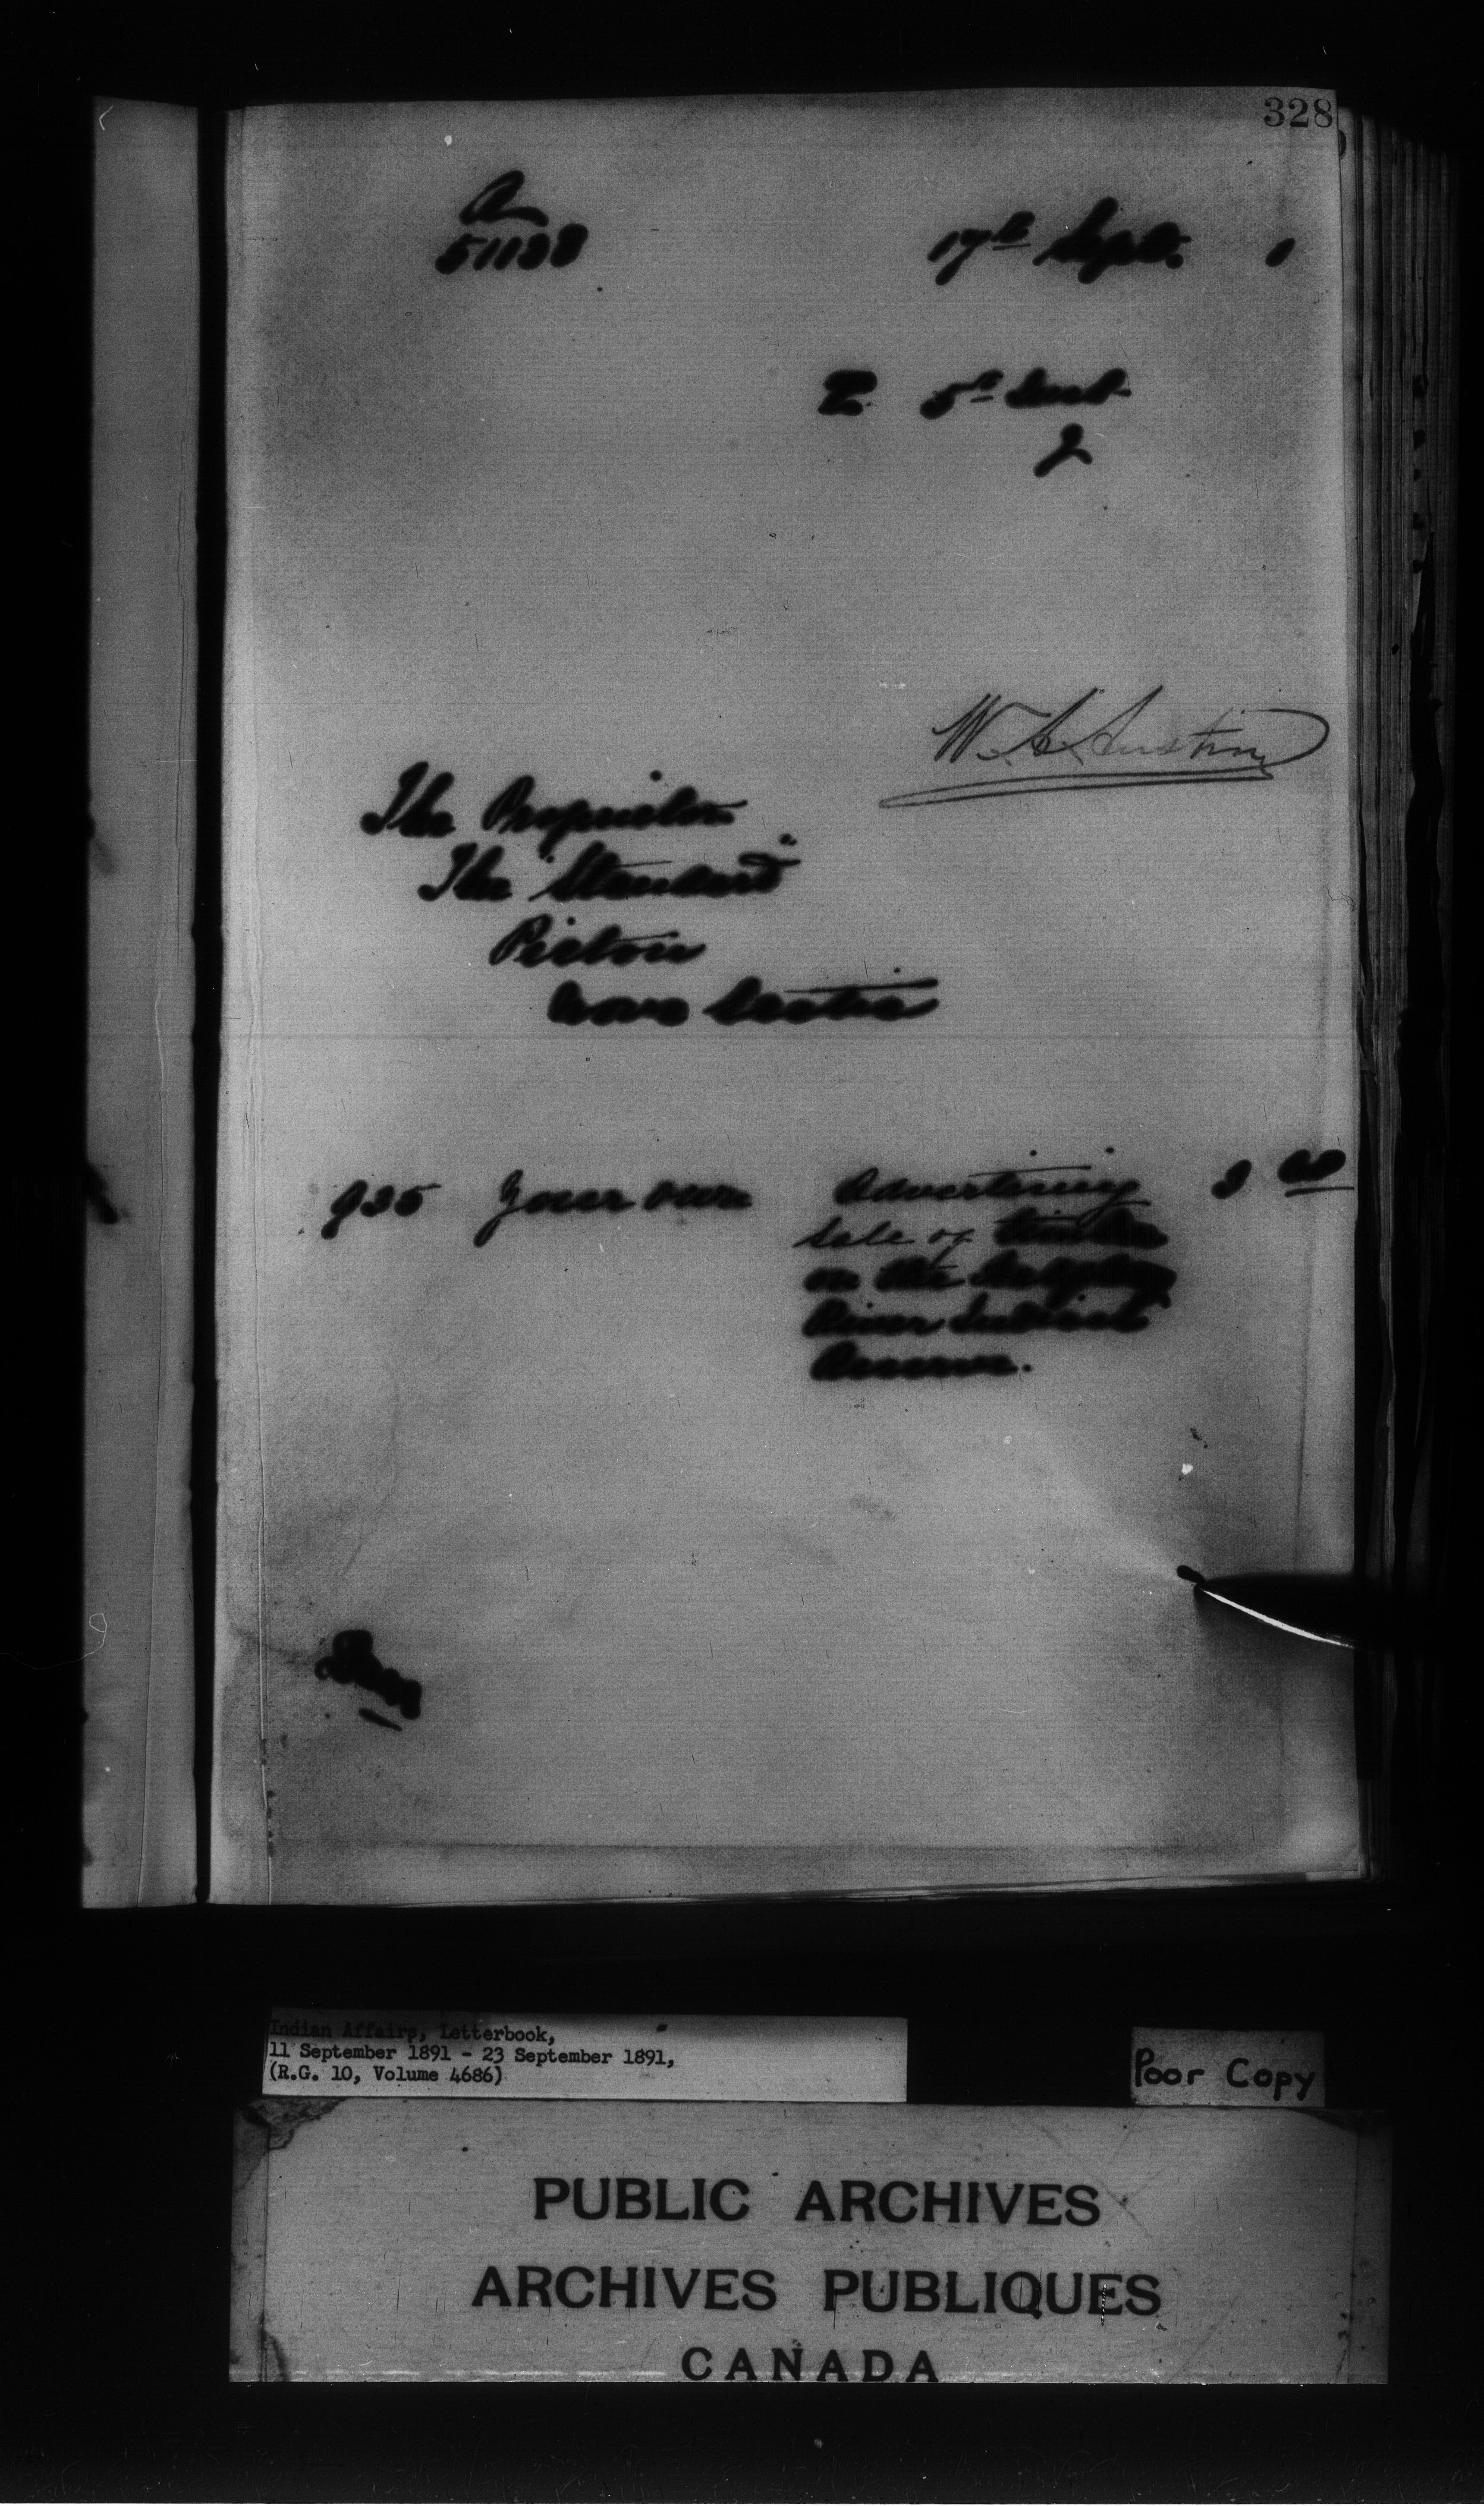 328
A
51138
17th Sept. 1
5th Inst.
W. A. Austin
The Proprietor
The "Standard"
Pictou
Nova Scotia
935 Your own Advertising 3 00
Sale of timber
on the
River Indian
Reserve.
Indian Affairs, Letterbook,
11 September 1891 - 23 September 1891,
(R.G. 10, Volume 4686)
Poor Copy
PUBLIC ARCHIVES
ARCHIVES PUBLIQUES
CANADA